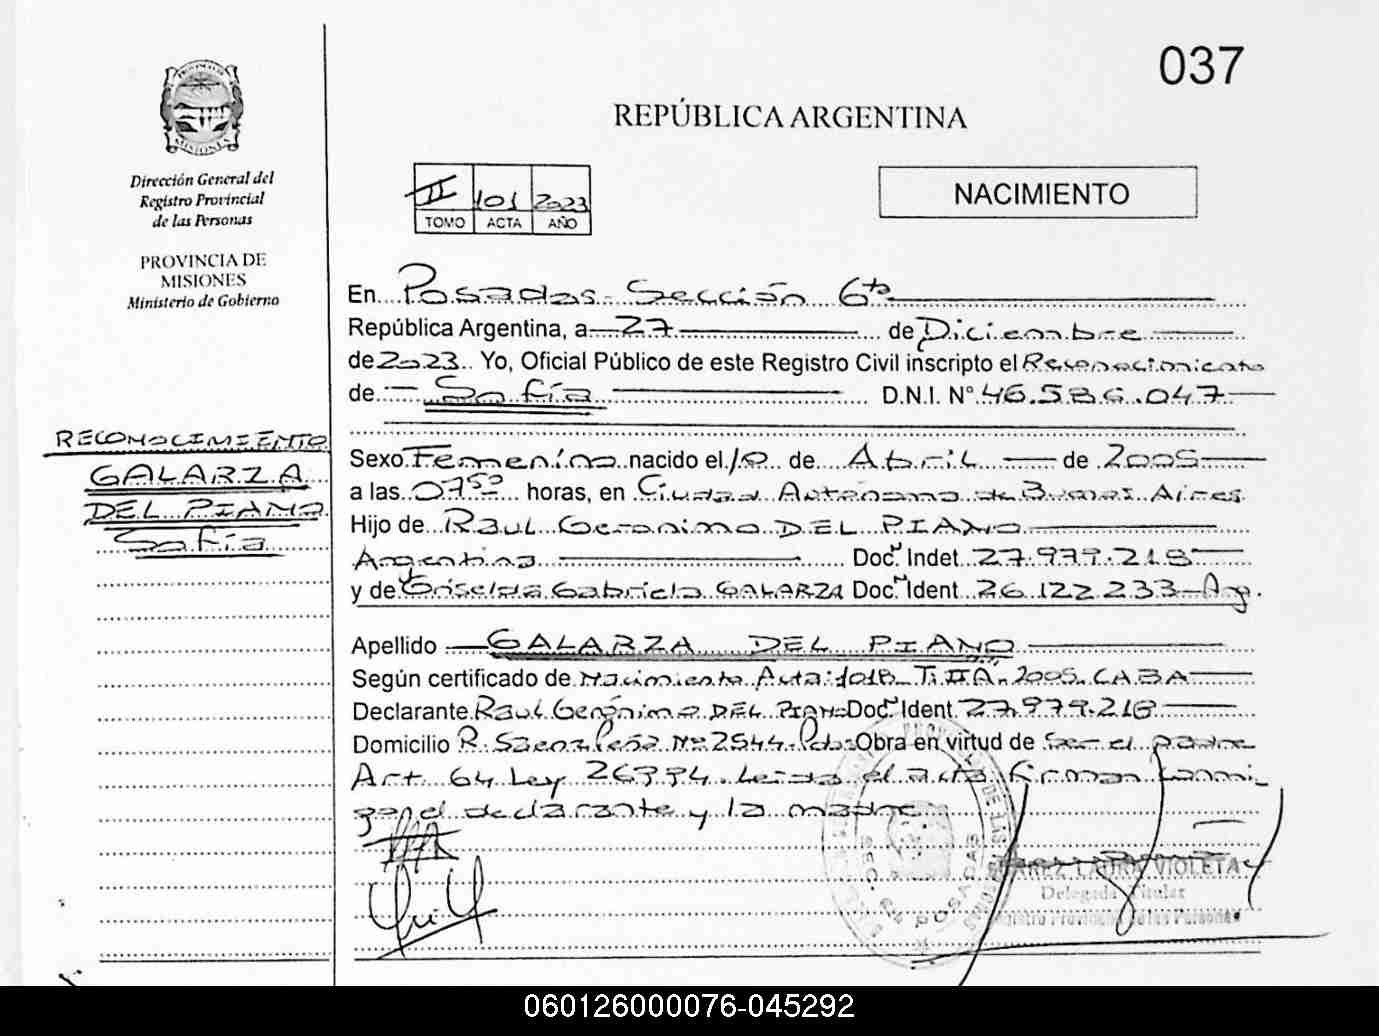 037
REPÚBLICA ARGENTINA
PROVINCIA DE
MISIONES
Dirección General del
Registro Provincial
de las Personas
PROVINCIA DE
MISIONES
Ministerio de Gobierno
II 101 2023
TOMO ACTA AÑO
NACIMIENTO
En Posadas - Sección 6ta
República Argentina, a 27 de Diciembre
de 2023 Yo, Oficial Público de este Registro Civil inscripto el Reconocimiento
de Sofía D.N.I. Nº 46.586.047
RECONOCIMIENTO
GALARZA
DEL PIANO
Sofía
Sexo Femenino nacido el 10 de Abril de 2005
a las 07 50 horas, en Ciudad Autónoma de Buenos Aires
Hijo de Raul Geronimo DEL PIANO
Argentina Doc. Indet 27.979.218
y de Griselda Gabriela GALARZA Doc. Ident 26.122.233 - Arg.
Apellido GALARZA DEL PIANO
Según certificado de Nacimiento Acta: 1018 T: IIA - 2005 - CABA
Declarante Raul Gerónimo DEL PIANO Doc. Ident 27.979.218
Domicilio R. Saenz Peña Nº 2544 - Pdas Obra en virtud de ser el padre
Art. 64 Ley 26994. Leida el acta firman conmi
go el declarante y la madre
LAURA VIOLETA
Delegada Titular
060126000076-045292